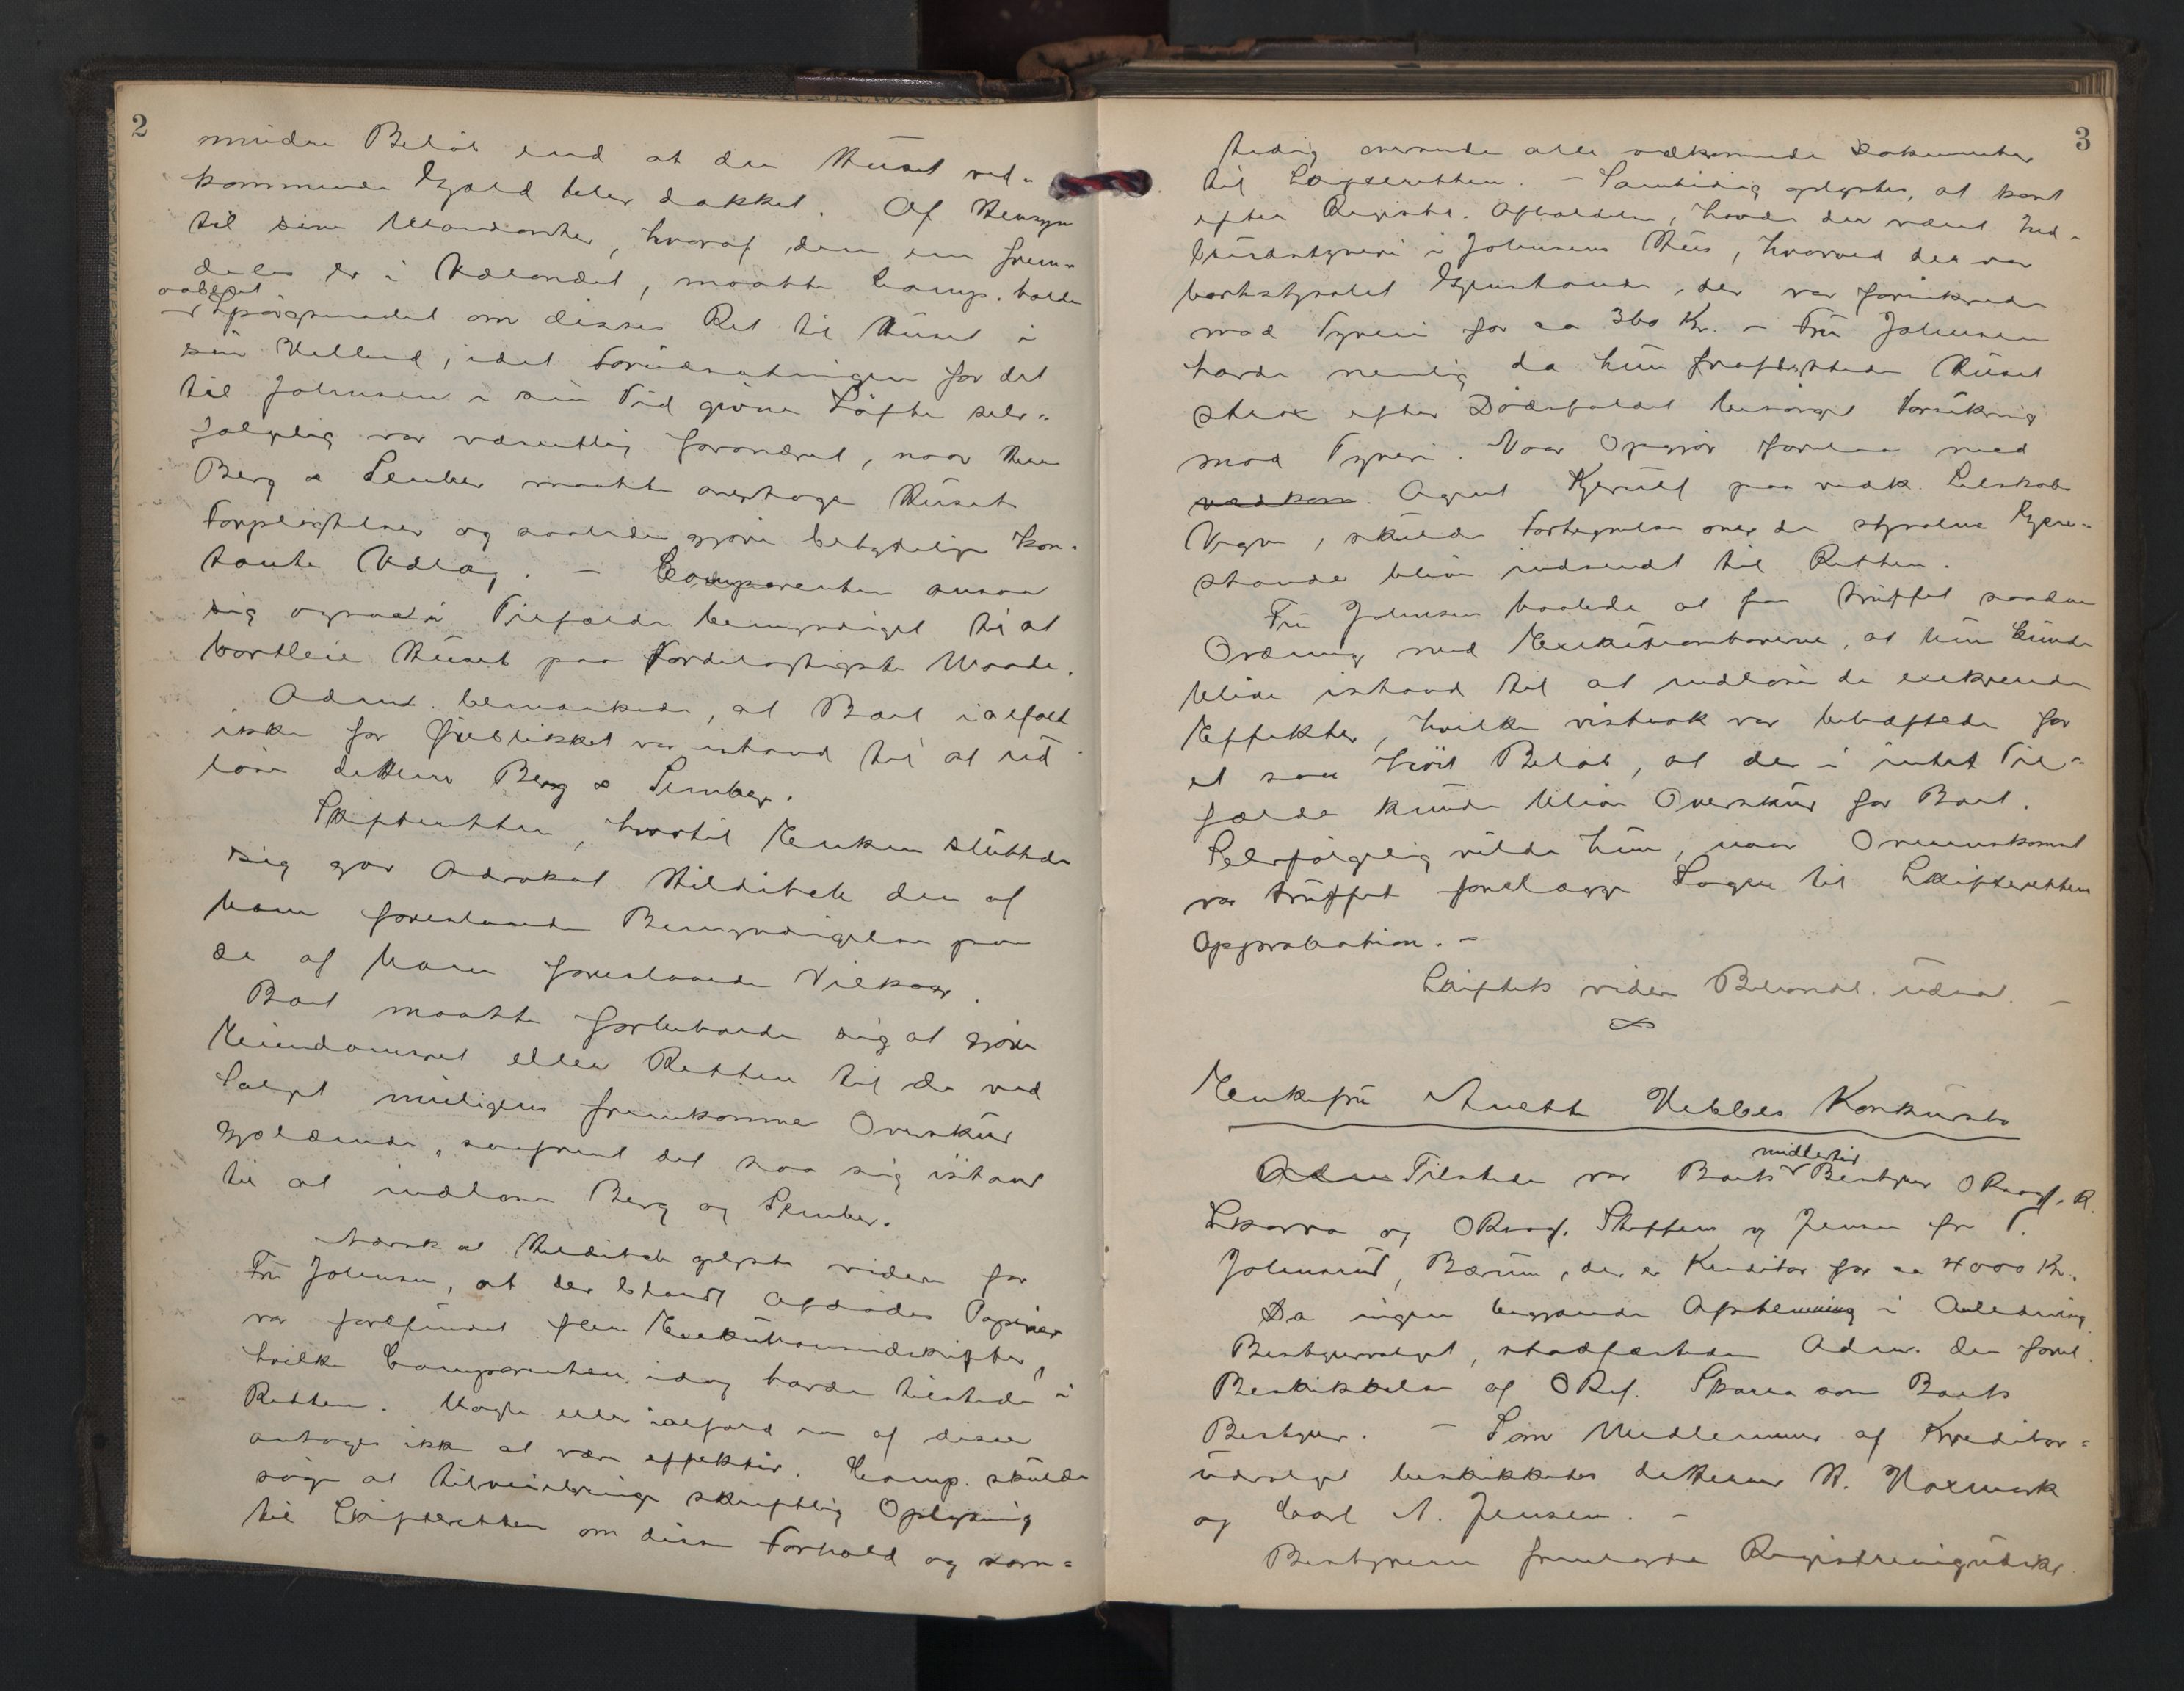 2
mindre Beløb end at den Huset ved-
kommende Gjæld blev dækket. Af Hensyn
til sine Mandanter, hvoraf den ene frem-
deles er i Udlandet, maatte Comp. holde
aabent
Spørgsmaalet om disses Ret til Huset i
sin Helhed, idet Forudsætningen for det
til Johnsen i sin Tid givne Løfte selv-
følgelig var væsentlig forandret, naar Herr
Berg & Sember maatte overtage Husets
Forpligtelser og saaledes gjøre betydelige kon-
tante Udlæg. — Comparenten ansaa
sig ogsaa i Tilfælde bemyndiget til at
bortleie Huset paa Fordelagtigste Maade.
Adm. bemærkede, at Boet ialfald
ikke for Øieblikket var istand til at ud-
løse dHerrer Berg & Sember.
Skifteretten, hvortil Enken sluttede
sig gav Advokat Hilditch den af
ham foreslaaede Bemyndigelse paa
de af ham foreslaaede Vilkaar.
Boet maatte forbeholde sig at gjøre
Eiendomsret eller Retten til de ved
Salget muligens fremkomne Overskud
gjældende, saafremt det saa sig istand
til at indløse Berg og Sember.
Advokat Hilditch oplyste videre for
Fru Johnsen, at der blandt Afdødes Papirer
var forefundet flere Exekutionsudskrifter,
hvilke Comparenten idag havde tilstede i
Retten. Nogle eller ialfald en af disse
antoges ikke at være effektiv. Comp. skulde
søge at tilveiebringe skriftlig Oplysning
til Skifteretten om disse Forhold og sam-
3
tidig oversende alle vedkommende Dokumenter
til Skifteretten. — Samtidig oplystes, at kort
efter Registr. Afholdelse, havde der været Ind-
brudstyveri i Johnsens Hus, hvorved der var
bortstjaalet Gjenstande, der var forsikrede
mod Tyveri for ca 360 Kr. — Fru Johnsen
havde nemlig da hun fraflyttede Huset
strax efter Dødsfaldet besørget Forsikring
mod Tyveri. Naar Opgjør forelaa med
vedkom. Agent Kjerulf paa vedk. Selskabs
Vegne, skulde Fortegnelse over de stjaalne Gjen-
stande blive indsendt til Retten.
Fru Johnsen haabede at faa truffet saadan
Ordning med Exekutionshaverne, at hun kunde
blive istand til at indløse de exekverede
Effekter, hvilke vistnok var behæftede for
et saa høit Beløb, at der i intet Til-
fælde kunde blive Overskud for Boet.
Selvfølgelig vilde hun, naar Overenskomst
var truffet forelægge Sagen til Skifterettens
Approbation. —
Skiftets videre Behandl. udsat. —
Enkefru Anette Hebbes Konkursbo
Adm Tilstede var Boets midlertid Bestyrer ORsagf. R.
Skarra og ORsagf. Steffens og Jensen for T.
Johnsrud, Bærum, der er Kreditor for ca 4000 Kr.
Da ingen begjærede Afstemning i Anledning
Bestyrervalget, stadfæstede Adm. den forel.
Beskikkelse af ORsf. Skarra som Boets
Bestyrer. — Som Medlemmer af Kreditor-
udvalget beskikkedes dHerrer H. Haxmark
og Carl N. Jensen. —
Bestyreren fremlagde Registreringsudskr.